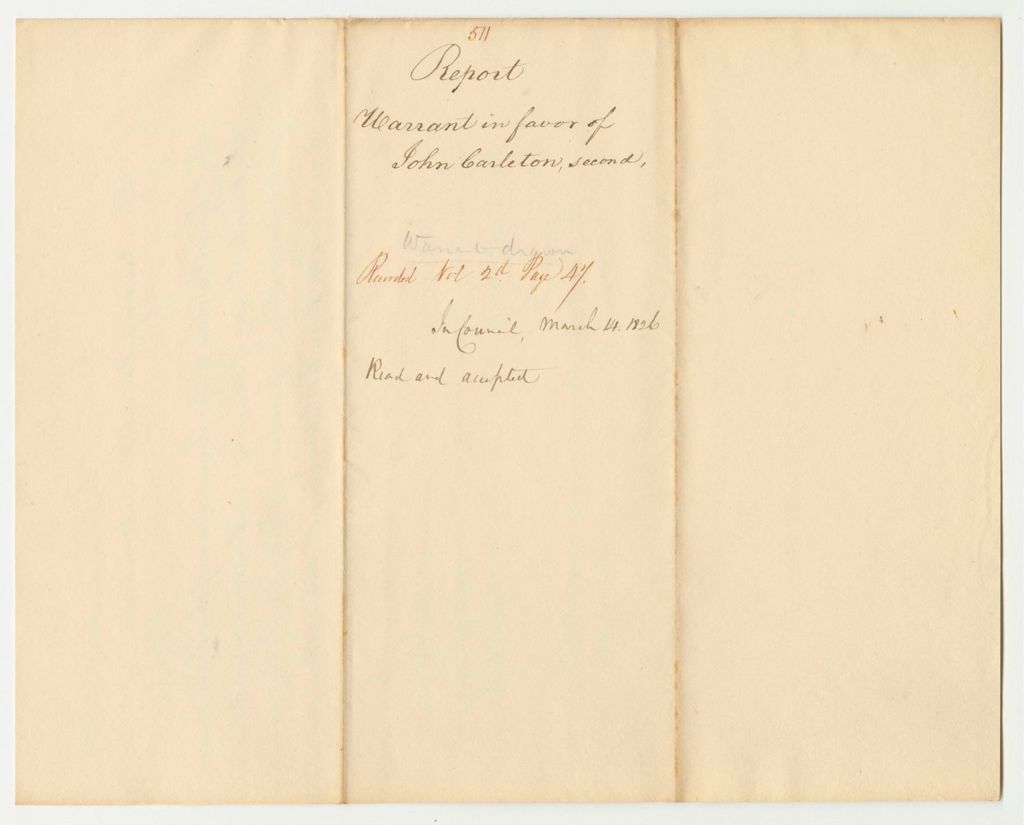 511
Report
Warrant in favor of
John Carleton, second,
Warrant drawn
Recorded Vol 2d. Page 47.
In Council, March 14. 1826
Read and accepted